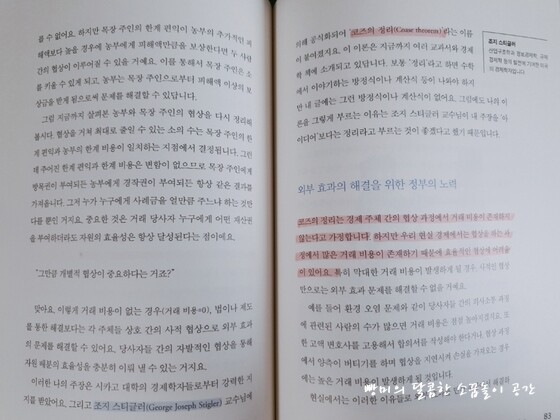 를 수 없어요. 하지만 목장 주인의 한계 편익이 농부의 추가적인 피
해액보다 높을 경우에 농부에게 피해액만큼을 보상한다면 두 사람
간의 협상이 이루어질 수 있을 거예요. 이를 통해서 목장 주인은 소
를 키울 수 있게 되고, 농부는 목장 주인으로부터 피해액 이상의 보
상금을 받게 됨으로써 문제를 해결할 수 있답니다.
그럼 지금까지 살펴본 농부와 목장 주인의 협상을 다시 정리해
봅시다. 협상을 거쳐 최대로 줄일 수 있는 소의 수는 목장 주인의 한
계 편익과 농부의 한계 비용이 일치하는 지점에서 결정됩니다. 그런
데 주어진 한계 편익과 한계 비용은 변함이 없으므로 목장 주인에게
방목권이 부여되든 농부에게 경작권이 부여되든 항상 같은 결과를
가져옵니다. 그저 누가 누구에게 사례금을 얼만큼 주느냐 하는 것만
다를 뿐인 거지요. 중요한 것은 거래 당사자 누구에게 어떤 재산권
을 부여하더라도 자원의 효율성은 항상 달성된다는 점이에요.
"그만큼 개별적 협상이 중요하다는 거죠?"
맞아요. 이렇게 거래 비용이 없는 경우(거래 비용=0), 법이나 제도
를 통한 해결보다는 각 주체들 상호 간의 사적 협상으로 외부 효과
의 문제를 해결할 수 있어요. 당사자들 간의 자발적인 협상을 통해
자원 배분의 효율성을 충분히 이뤄 낼 수 있는 거지요.
이러한 나의 주장은 시카고 대학의 경제학자들로부터 강력한 지
지를 받았어요. 그리고 조지 스티글러(George Joseph Stigler) 교수님에
의해 공식화되어 '코즈의 정리(Coase theorem)'라는 이름
이 붙여졌지요. 이 이론은 지금까지 여러 교과서와 경제
학 책에 소개되고 있답니다. 보통 '정리'라고 하면 수학에
서 이야기하는 방정식이나 계산식 등이 나와야 하지
만 내 글에는 그런 방정식이나 계산식이 없어요. 그럼에도 나의 이
론을 그렇게 부르는 이유는 조지 스티글러 교수님이 내 주장을 '아
이디어'보다는 정리라고 부르는 것이 좋겠다고 했기 때문입니다.
조지 스티글러
외부 효과의 해결을 위한 정부의 노력
코즈의 정리는 경제 주체 간의 협상 과정에서 거래 비용이 존재하지
않는다고 가정합니다. 하지만 우리 현실 경제에서는 협상을 하는 과
정에서 많은 거래 비용이 존재하기 때문에 효율적인 협상에 어려움
이 있어요. 특히 막대한 거래 비용이 발생하게 될 경우, 사적인 협상
만으로는 외부 효과 문제를 해결할 수 없을 거예요.
예를 들어 환경 오염 문제와 같이 당사자들 간의 의사소통 과정
에 관련된 사람의 수가 많으면 거래 비용은 점점 높아지겠지요. 또
한 고액 변호사를 고용해서 합의서를 작성해야 한다거나 협상 과정
에서 양측이 버티기를 하며 협상을 지연시켜 손실을 가져오는 경우
에는 높은 거래 비용이 발생하게
83
빵미의 달콤한 소꿉놀이 공간